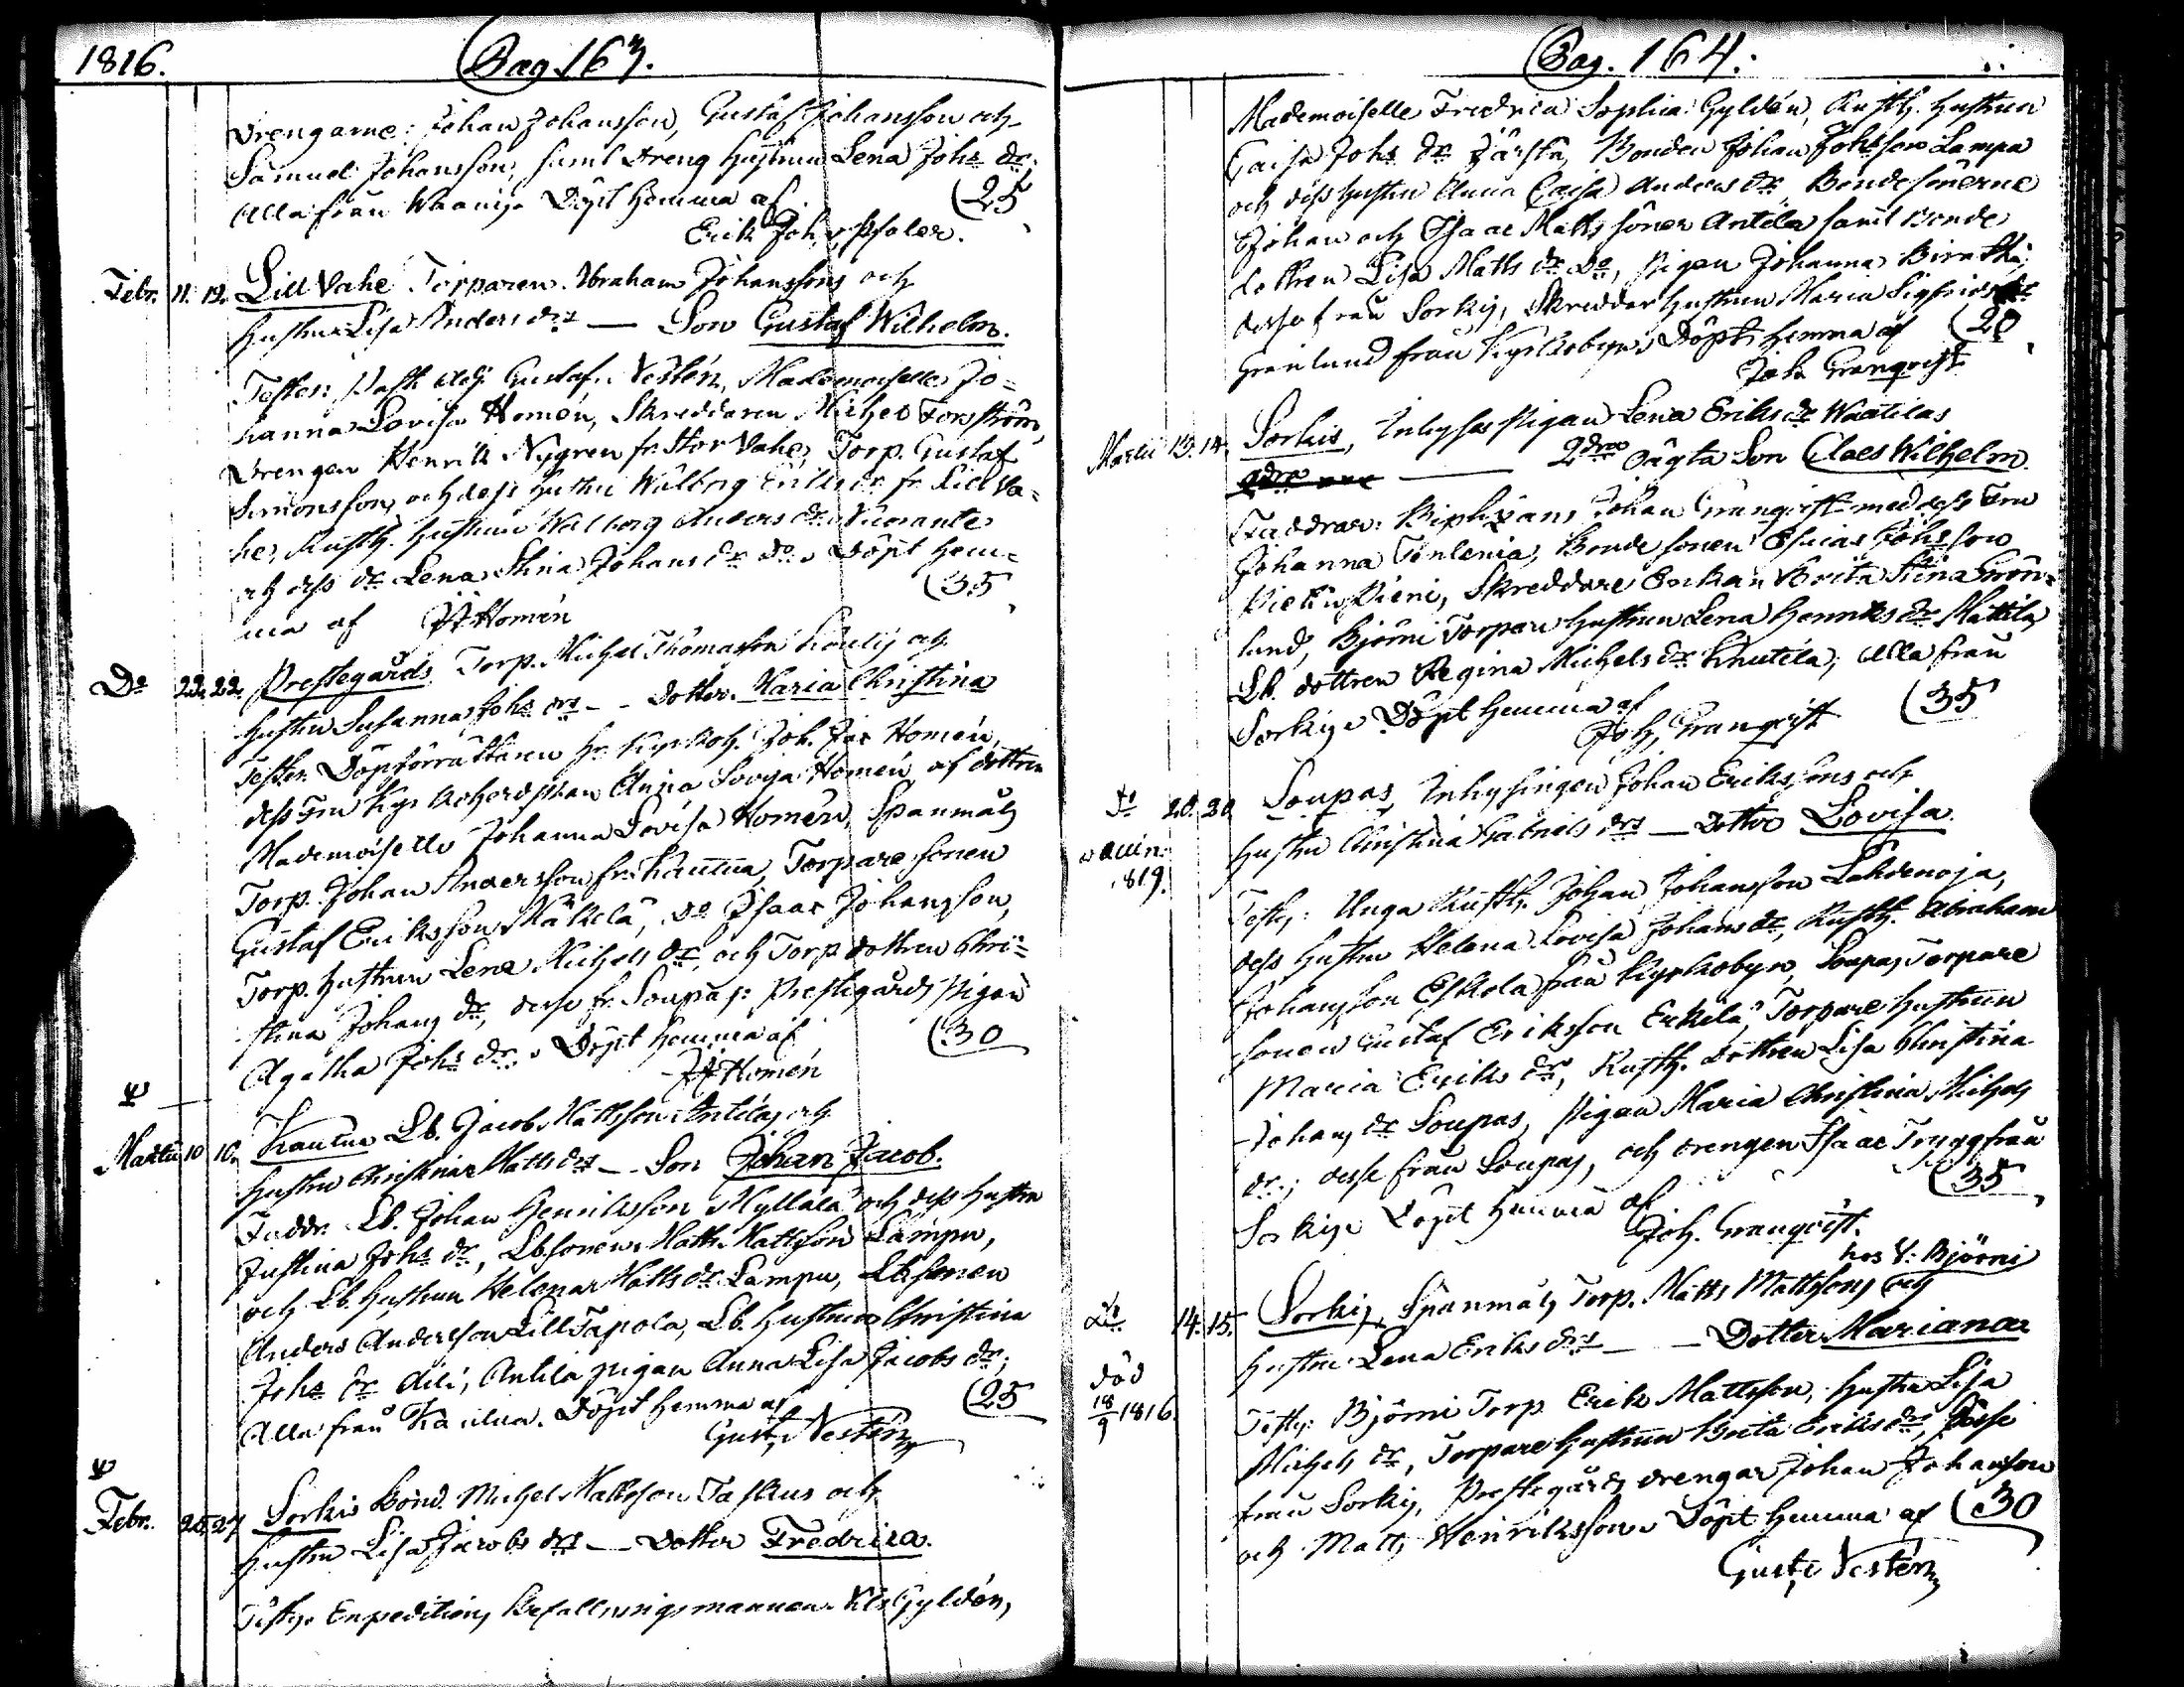 1816.
Pag. 163.
Drengarne: Johan Johansson, Gustaf Johansson och
Samuel Johansson, samt Dreng hustrun Lena Johs dr;
Alla från Waanij. Döpt hemma af (25
Erik Joh.
Febr. 11. 12. Lill Vahe Torparen Abraham Johanssons och
hustru Lisa Anders drs — Son Gustaf Wilhelm.
Testes: Past. Adj. Gustaf Nestén, Mademoiselle Jo=
hanna Lovisa Homén, Skreddaren Michel Forsström,
Drengen Henrik Nygren fr. Stor Vahe, Torp. Gustaf
Simonsson och dess hustru Walborg Eriks dr fr. Lill Va=
he, Rusth. hustrun Walborg Anders dr
och dess dr Lena Stina Johans dr do. Döpt hem=
ma af JJHomén (35
Do 22. 22. Prestegårds Torp. Michel Thomasson och
hustru Susanna Johs drs — Dotter Maria Christina
Testes: Döpförrättaren hr Kyrkoh. Joh. Jac Homén,
dess Fru Kyrkoherdskan Anna Lovisa Homén, af dottren
Mademoiselle Johanna Lovisa Homén, Spanmåls
Torp. Johan Andersson fr. Kauttua, Torpare sonen
Gustaf Eriksson Käkelä, do Isaac Johansson,
Torp. hustrun Lena Michels dr, och Torp. dottren Chri=
stina Johans dr, desse fr. Soupas: Prestegårds Pigan
Agatha Johs dr. Döpt hemma af (30
JJHomén
Martii 10 10. Kauttua Lb. Jacob Mattsson Anttilas och
hustru Christina Matts drs — Son Johan Jacob.
Faddr. Lb. Johan Henriksson Myllälä och dess hustru
Justina Johs dr, Lb sonen Matts Mattsson Lampu,
och Lb. hustrun Helena Matts dr Lampu, Lb sonen
Anders Andersson Lill Tapola, Lb. hustrun Christina
Johs dr Alli, Antila pigan Anna Lisa Jacobs dr;
Alla från Kauttua. Döpt hemma af (25
Gust. Nestén
Febr. 25. 27 Sorkis Bond. Michel Mattsson Taskus och
hustru Lisa Jacobs drs — Dotter Fredrica.
Testes. Expeditions Befallningsmannen Gyldén,
Pag. 164.
Mademoiselle Fredrica Sophia Gyldén, Rusth. hustrun
Caisa Johs dr Bonden Johan Johsson Lampa
och dess hustru Anna Caisa Anders dr Bondesönerne
Johan och Isaac Matts söner Antila samt Bonde
dottren Lisa Matts dr do, Pigan Johanna
desse från Sorkis, Skreddar hustrun Maria Sigfrids dr
Grönlund från Kyrkobyn. Döpt hemma af (20
Joh. Granqvist
Martii 13. 14. Sorkis, Inhyses Pigan Lena Eriks dr Waatilas
2dra oägta Son Claes Wilhelm.
Faddrar: Johan Granqvist med dess Fru
Johanna Tenlenia, Bonde sonen Esaias Johsson
Pieni, Skreddare Enkan Brita Stina Grön=
lund, Björni Torpare hustrun Lena Henriks dr Mattila,
Lb. dottren Regina Michels dr Knutila, Alla från
Sorkis. Döpt hemma af (35
Joh. Granqvist
Do 20. 20 Soupas, Inhysingen Johan Erikssons och
hustru Christina Gabriels drs — Dotter Lovisa.
1819.
Testes: Unga Rusth. Johan Johansson Lahdenoja,
dess hustru Helena Lovisa Johans dr, Rusth. Abraham
Johansson Eskola från Kyrkobyn, Soupas Torpare
sonen Gustaf Eriksson Erkilä, Torpare hustrun
Maria Eriks dr, Rusth. dottren Lisa Christina
Johans dr Soupas, Pigan Maria Christina Michels
dr; desse från Soupas, och drengen Isaac Trygg från
Sorkis. Döpt hemma af (35
Joh. Granqvist.
hos V. Björni
Do 14. 15. Sorkis, Spanmåls Torp. Matts Mattssons och
hustru Lena Eriks drs — Dotter Mariana
död
18/9 1816.
Testes: Björni Torp. Erik Mattsson, hustru Lisa
Michels dr, Torpare hustrun Brita Eriks dr, desse
från Sorkis, Prestegårds drengar Johan Johansson
och Matts Henriksson. Döpt hemma af (30
Gust. Nestén